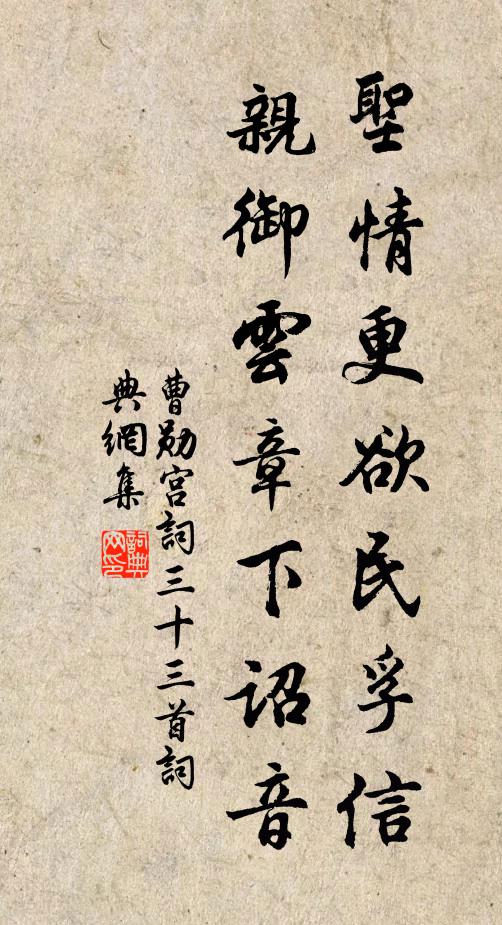 聖情更欲民孚信
親御雲章下詔音
曹勛宮詞三十三首詞
典網集
詞典網印